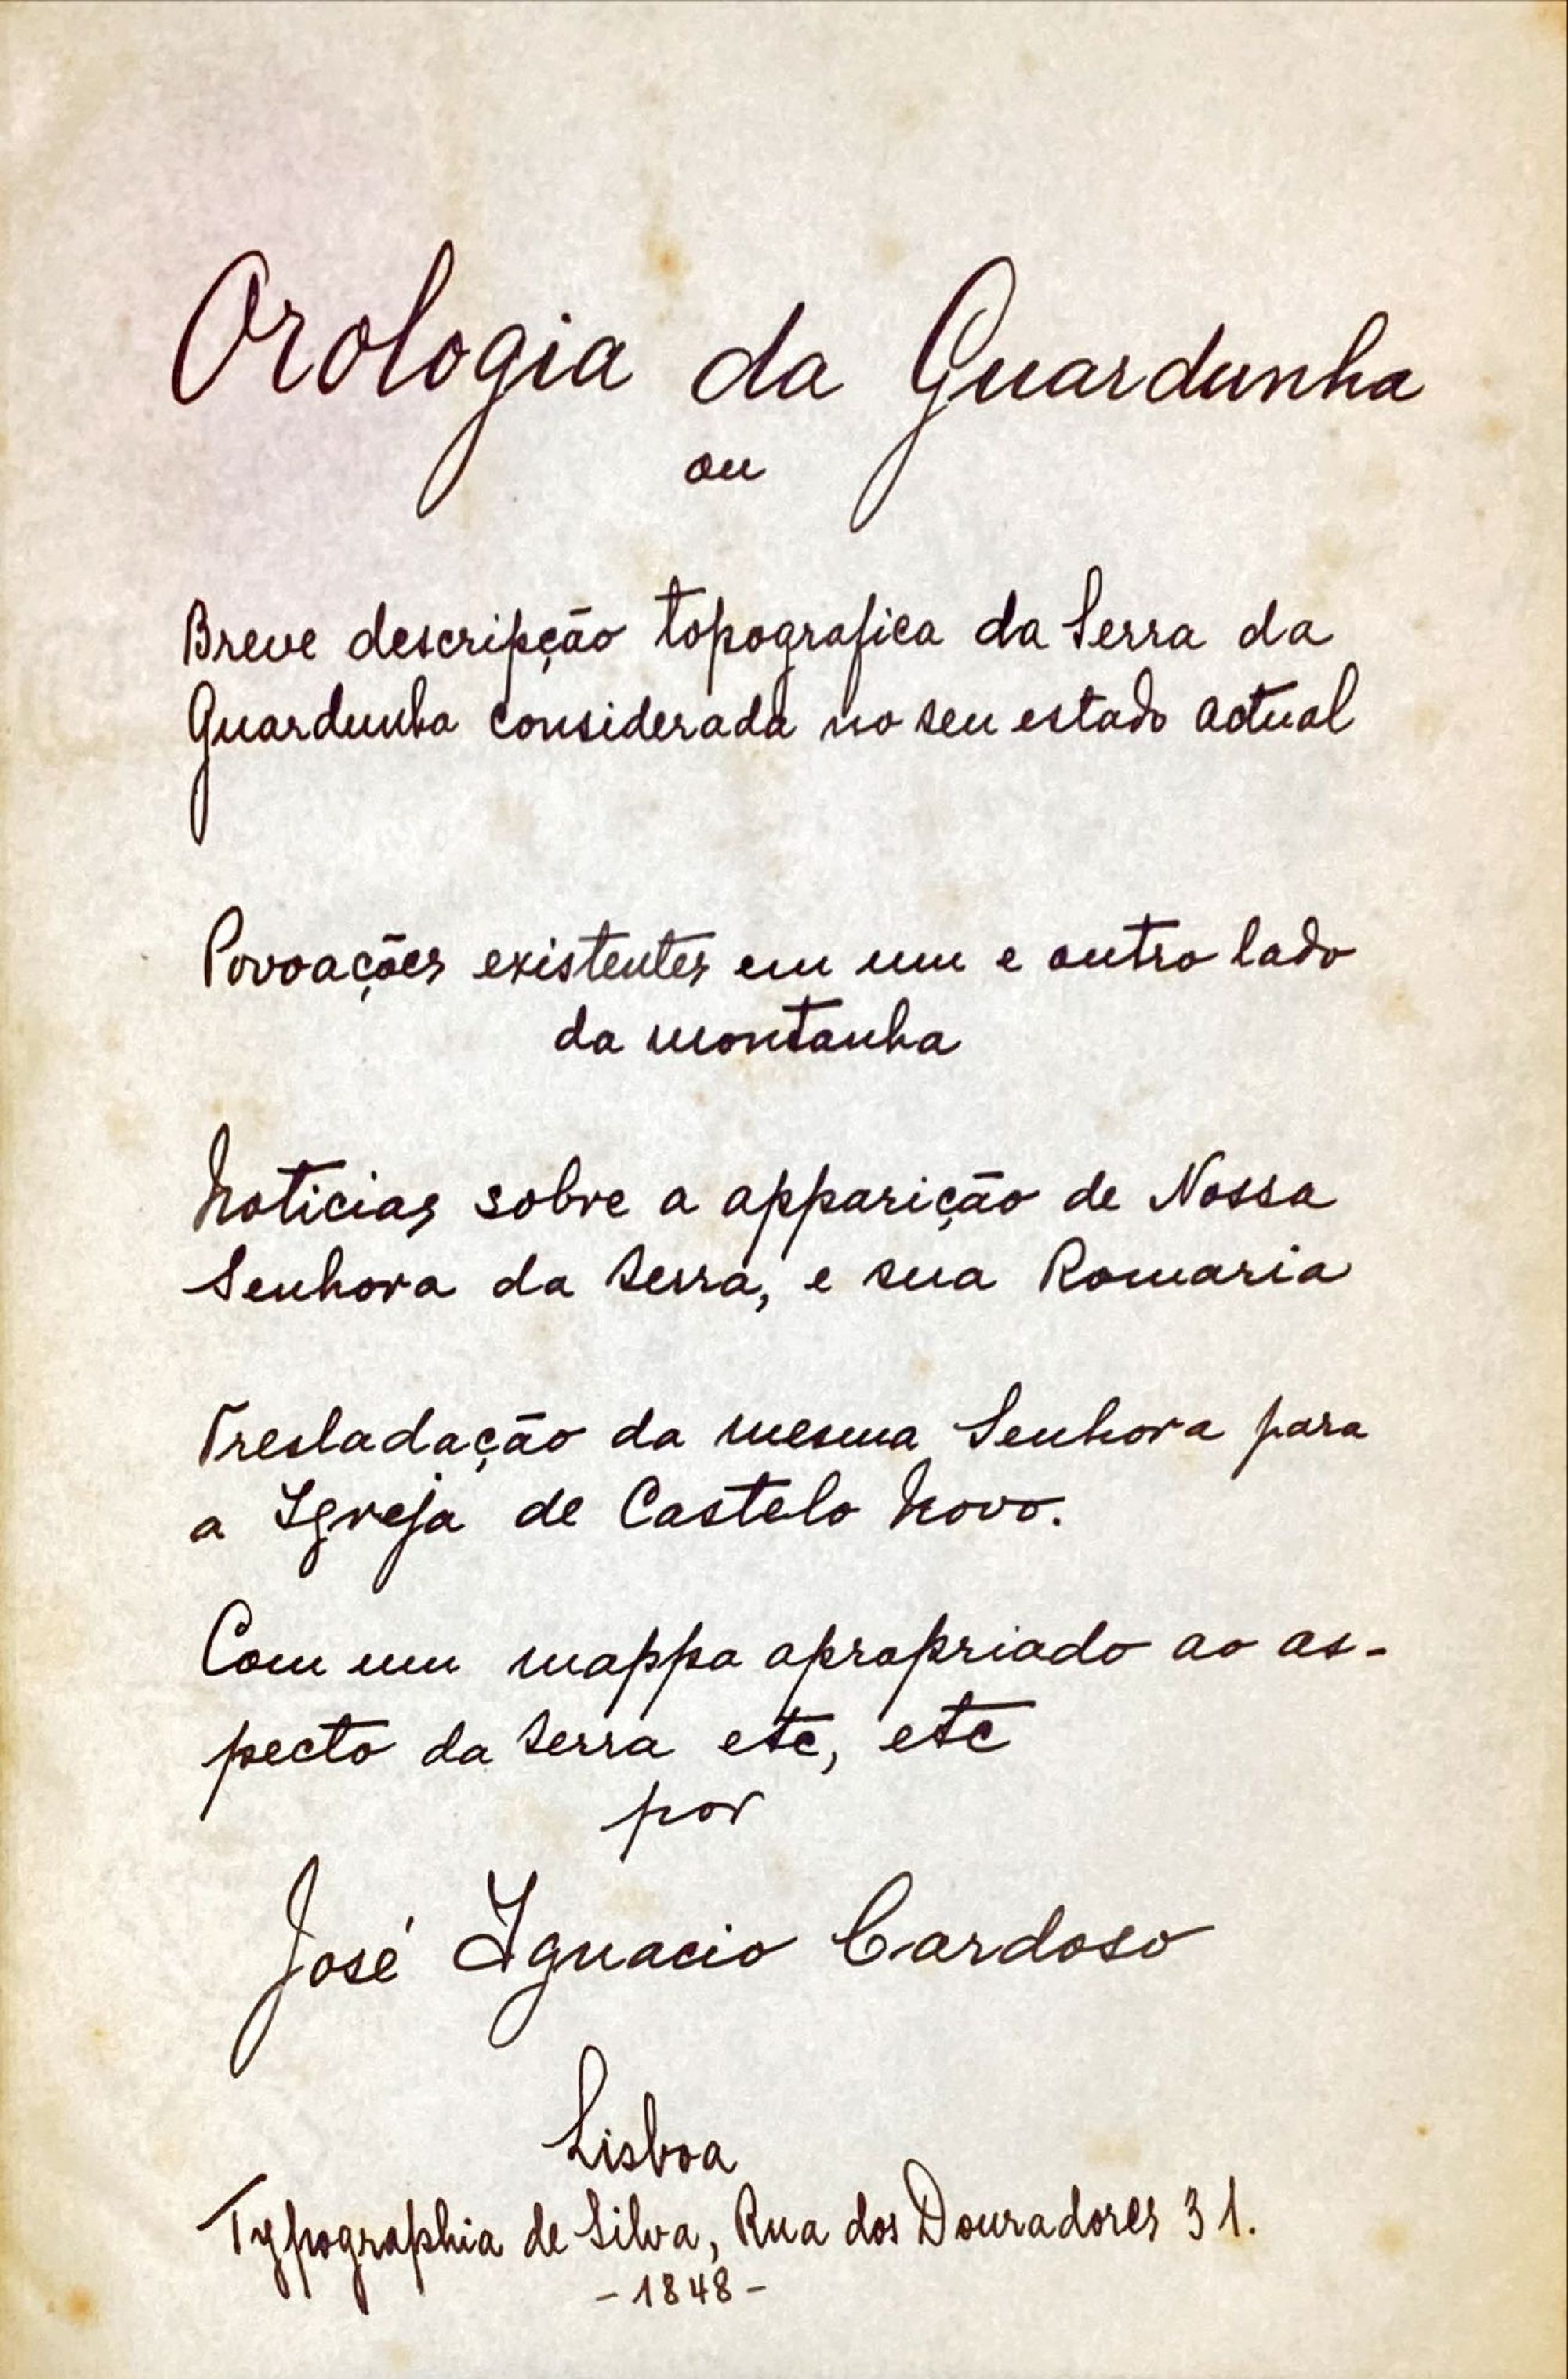 Orologia da Guardunha
ou
Breve descripção topografica da Serra da
Guardunha considerada no seu estado actual
Povoações existentes em um e outro lado
da montanha
Noticias sobre a apparição de Nossa
Senhora da Serra, e sua Romaria
Tresladação da mesma Senhora para
a Igreja de Castelo Novo.
Com um mappa apropriado ao as-
pecto da Serra etc, etc
por
José Ignacio Cardoso
Lisboa
Typographia de Silva, Rua dos Douradores 31.
- 1848 -